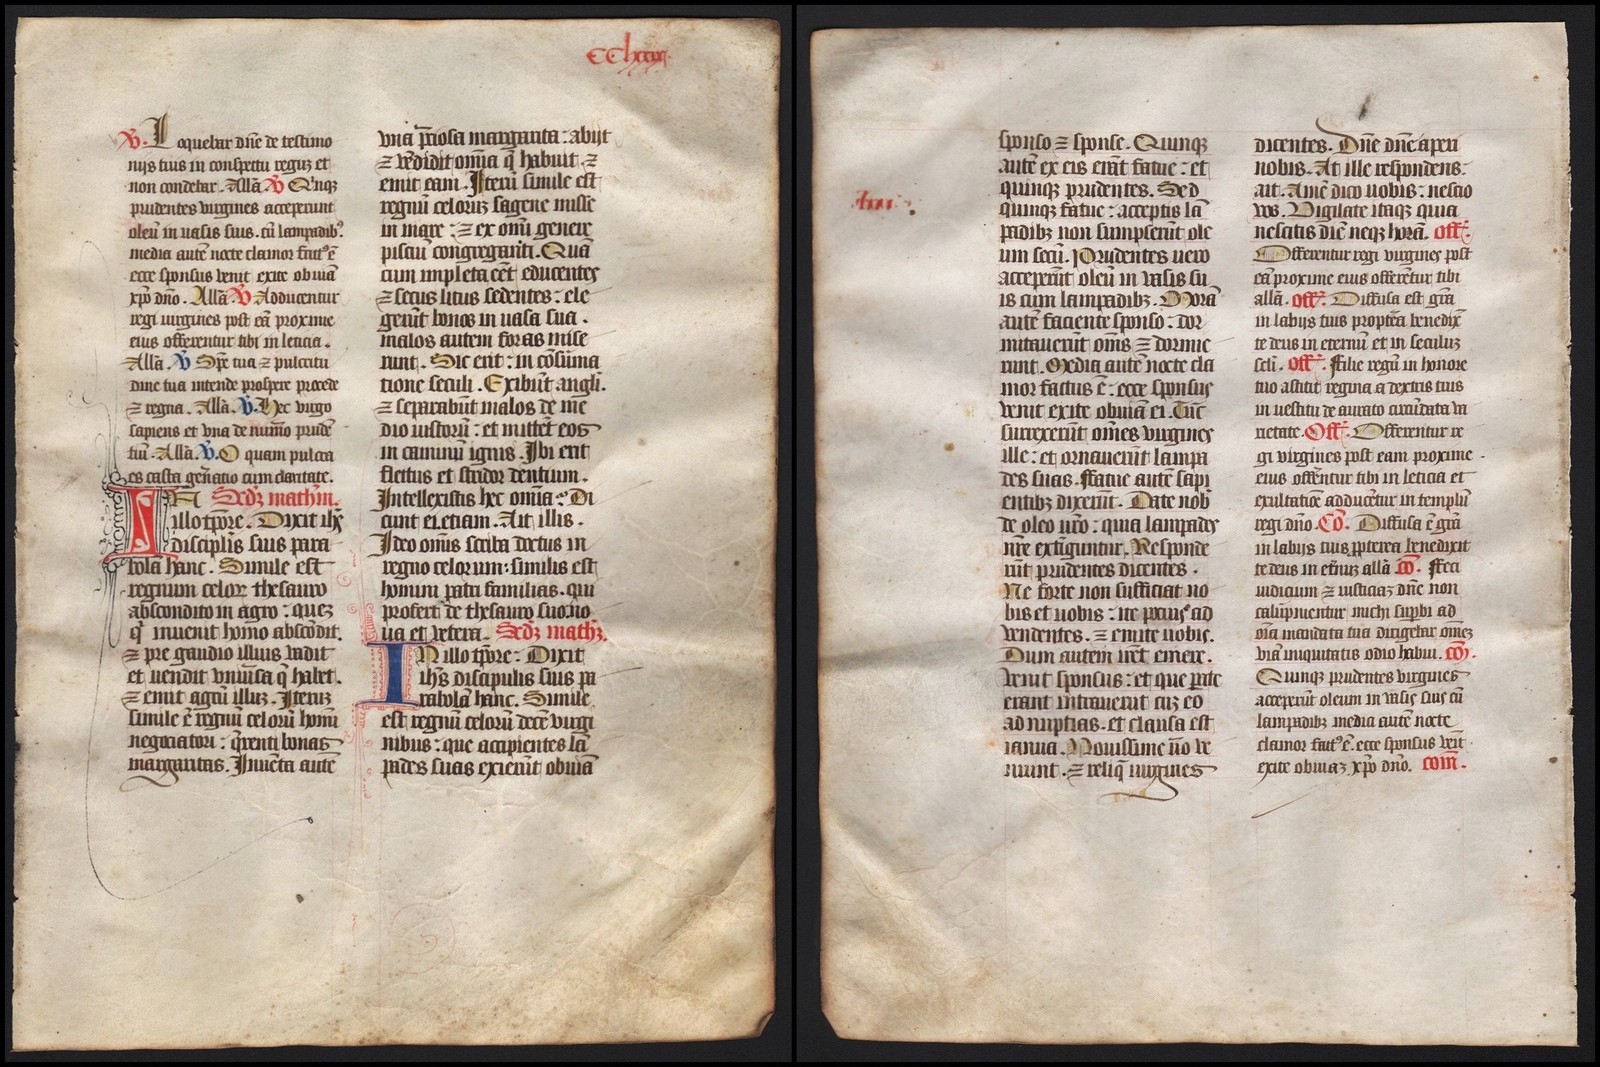 CClxxxix
V. Loquebar dñe de testimo
nijs tuis in conspectu regũ et
non confũdebar. Allã. V Qinqꝫ
prudentes virgines acceperunt
oleũ in vasis suis. cũ lampadibꝰ.
media autẽ nocte clamor factꝰ ẽ
ecce sponsus venit exite obuiã
xpõ dño. Allã. V Adducentur
regi virgines post eã proxime
eius offerentur tibi in leticia.
Allã. V Spẽ tua ⁊ pulcritu
dine tua intende prospere procede
⁊ regna. Allã. V. Hec virgo
sapiens et vna de nũmo prudẽ
tiũ. Allã. V. O quam pulcra
es casta gẽñatio cum claritate.
IN Secdꝫ mathm̃.
illo tp̃ore. Dixit ihs̃
discipl̃is suis para
bolã hanc. Simile est
regnum celoꝝ thesauro
abscondito in agro: quez
q̃ inuenit homo abscõdit.
⁊ pre gaudio illius vadit
et vendit vniũsa q̃ habet.
⁊ emit agrũ illuꝫ. Iteruꝫ
simile ẽ regnũ celorũ homĩ
negociatori: q̃renti bonas
margaritas. Inuẽta autẽ
vna p̃ciosa margarita: abijt
⁊ vẽdidit omĩa q̃ habuit. ⁊
emit eam. Iterũ simile est
regnũ celoruꝫ sagene misse
in mare: ⁊ ex omĩ genere
pisciũ congreganti. Quã
cum impleta cẽt educentes
⁊ secus litus sedentes: ele
gerũt bonos in vasa sua.
malos autem foras mise
runt. Sic erit: in cõsũma
tione seculi. Exibũt angl̃i.
⁊ separabũt malos de me
dio iustorũ: et mittẽt eos
in caminũ ignis. Ibi erit
fletus et stridor dentium.
Intellexistis hec omĩa: Di
cunt ei. etiam. Ait illis.
Ideo omĩs scriba doctus in
regno celorum: similis est
homini patri familias. qui
profert de thesauro suo no
ua et vetera. Secdꝫ mathꝫ.
IN illo tp̃ore: Dixit
ihs̃ discipulis suis pa
rabolã hanc. Simile
est regnũ celorũ decẽ virgi
nibus: que accipientes lã
pades suas exierũt obuiã
sponso ⁊ sponse. Quinqꝫ
autẽ ex eis erãt fatue: et
quinqꝫ prudentes. Sed
quinqꝫ fatue: acceptis lã
padibꝫ non sumpserũt ole
um secũ. Prudentes vero
acceperũt oleũ in vasis su
is cum lampadibꝫ. Morã
autẽ faciente sponso: dor
mitauerũt omẽs ⁊ dormie
runt. Media autẽ nocte cla
mor factus ẽ: ecce sponsus
venit exite obuiã ei. Tũc
surrexerũt omẽs virgines
ille: et ornauerũt lampa
des suas. Fatue autẽ sapi
entibꝫ dixerũt. Date nob̃
de oleo vr̃o: quia lampades
nr̃e extiguntur. Responde
rũt prudentes dicentes.
Ne forte non sufficiat no
bis et vobis: ite pociꝰ ad
vendentes. ⁊ emite vobis.
Dum autem irẽt emere.
venit sponsus: et que pate
erant intrauerũt cuꝫ eo
ad nuptias. et clausa est
ianua. Nouissime ṽo ve
niunt. ⁊ reliq̃ virgines
dicentes. Dñe dñe aperi
nobis. At ille respondens.
ait. Amẽ dico vobis: nescio
vos. Vigilate itaqꝫ quia
nescitis diẽ neqꝫ horã. off̃.
Offerentur regi virgines post
eã proxime eius offerẽtur tibi
allã. off̃. Diffusa est grã
in labijs tuis proptẽa benedix̃
te deus in eternũ et in seculuꝫ
scl̃i. Off̃. Filie regũ in honore
tuo astitit regina a dextris tuis
in vestitu de aurato circũdata va
rietate. Off̃. Offerentur re
gi virgines post eam proxime.
eius offẽntur tibi in leticia et
exultatiõe adducẽtur in templũ
regi dño. Cõ. Diffusa ẽ grã
in labijs tuis p̱pterea benedixit
te deus in et̃nuꝫ allã. cõ. Feci
iudicium ⁊ iusticiaꝫ dñe non
calũpnientur michi supbi ad
oĩa mandata tua dirigebar omẽꝫ
viã iniquitatis odio habui. cõ.
Quinqꝫ prudentes virgines
acceperũt oleum in vasis suis cũ
lampadibꝫ media autẽ nocte
clamor factꝰ ẽ. ecce sponsus veĩt
exite obuiaꝫ xpõ dño. com̃.